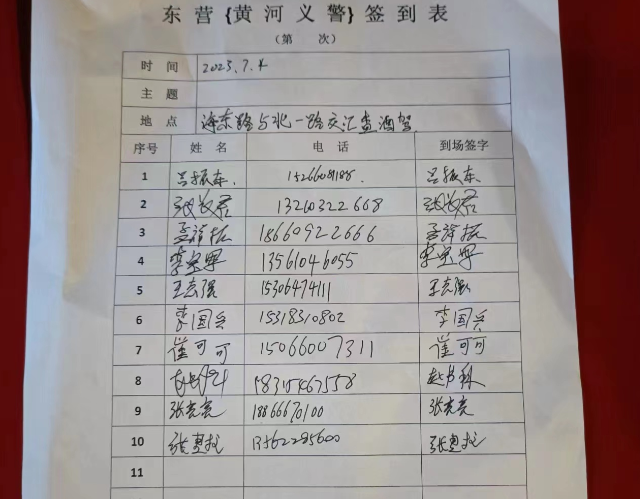 东营{黄河义警}签到表
（第 次）
时 间 2023.7.4
主 题
地 点 海东路与北一路交汇查酒驾
序号 姓 名 电 话 到场签字
1 吕振东. 吕振东
2 13260322668
3 孟祥振 18660922666 孟祥振
4 李宝军 13561046055 李宝军
5 王志强 15306474111 王志强
6 李国兵 15318310802 李国兵
7 崔可可 15066007311 崔可可
8 15315467558
9 张亮亮 18866670100 张亮亮
10 13562295600
11